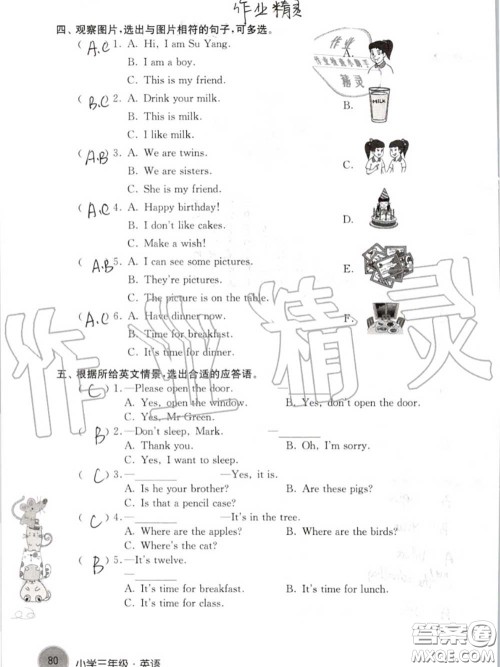 作业精灵
四、观察图片，选出与图片相符的句子，可多选。
(A,C) 1. A. Hi, I am Su Yang.
B. I am a boy.
C. This is my friend.
A.
(B,C) 2. A. Drink your milk.
B. This is milk.
C. I like milk.
B.
MILK
(A,B) 3. A. We are twins.
B. We are sisters.
C. She is my friend.
C.
(A,C) 4. A. Happy birthday!
B. I don't like cakes.
C. Make a wish!
D.
(A,B) 5. A. I can see some pictures.
B. They're pictures.
C. The picture is on the table.
E.
(A,C) 6. A. Have dinner now.
B. Time for breakfast.
C. It's time for dinner.
F.
五、根据所给英文情景，选出合适的应答语。
(C) 1. —Please open the door. —________
A. Yes, open the window. B. Yes, don't open the door.
C. Yes, Mr Green.
(B) 2. —Don't sleep, Mark. —________
A. Thank you. B. Oh, I'm sorry.
C. Yes, I want to sleep.
(C) 3. —________ —Yes, it is.
A. Is he your brother? B. Are these pigs?
C. Is that a pencil case?
(C) 4. —________ —It's in the tree.
A. Where are the apples? B. Where are the birds?
C. Where's the cat?
(B) 5. —It's twelve.
—________
A. It's time for breakfast. B. It's time for lunch.
C. It's time for class.
80 小学三年级·英语
作业精灵
答案圈
MXQE.COM